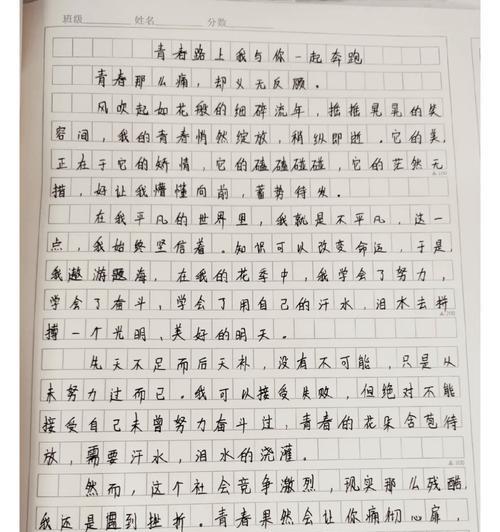 班级 姓名 分数
青春路上我与你一起奔跑
青春那么痛，却义无反顾。
风吹起如花般的细碎流年，摇摇晃晃的笑
容间，我的青春悄然绽放，稍纵即逝。它的美，
正在于它的矫情，它的磕磕碰碰，它的茫然无
措，好让我懵懂向前，蓄势待发。
▲100
在我平凡的世界里，我就是不平凡，这一
点，我始终坚信着。知识可以改变命运，于是，
我遨游题海，在我的花季中，我学会了努力，
学会了奋斗，学会了用自己的汗水，泪水去拼
▲200
搏一个光明、美好的明天。
先天不足而后天补，没有不可能，只是从
未努力过而已。我可以接受失败，但绝对不能
接受自己未曾努力奋斗过，青春的花朵含苞待
放，需要汗水，泪水的浇灌。
然而，这个社会竞争激烈，现实那么残酷，
我还是遇到挫折。青春果然会让你痛彻心扉，